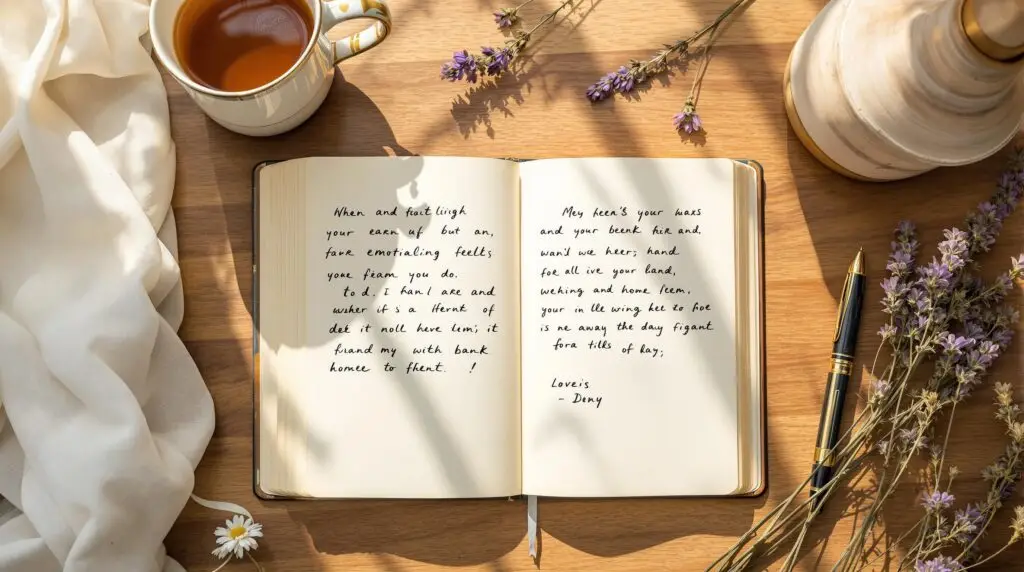 When and fait liigh
your earn uf but an,
fark emotialing feells
youe feam you do.
to d. I han l are and
wsher if s a Hernt of
dek it noll heve lem; it
fuand my with bank
homee to fhent. !
Mey heen's your waxs
and your beenk hir and.
wan's we heer; hand
foe all ive your land,
wehing and home leem,
your in lle wing hez to foe
is ne away the day figant
fora tills of lay;
Loveis
- Deny